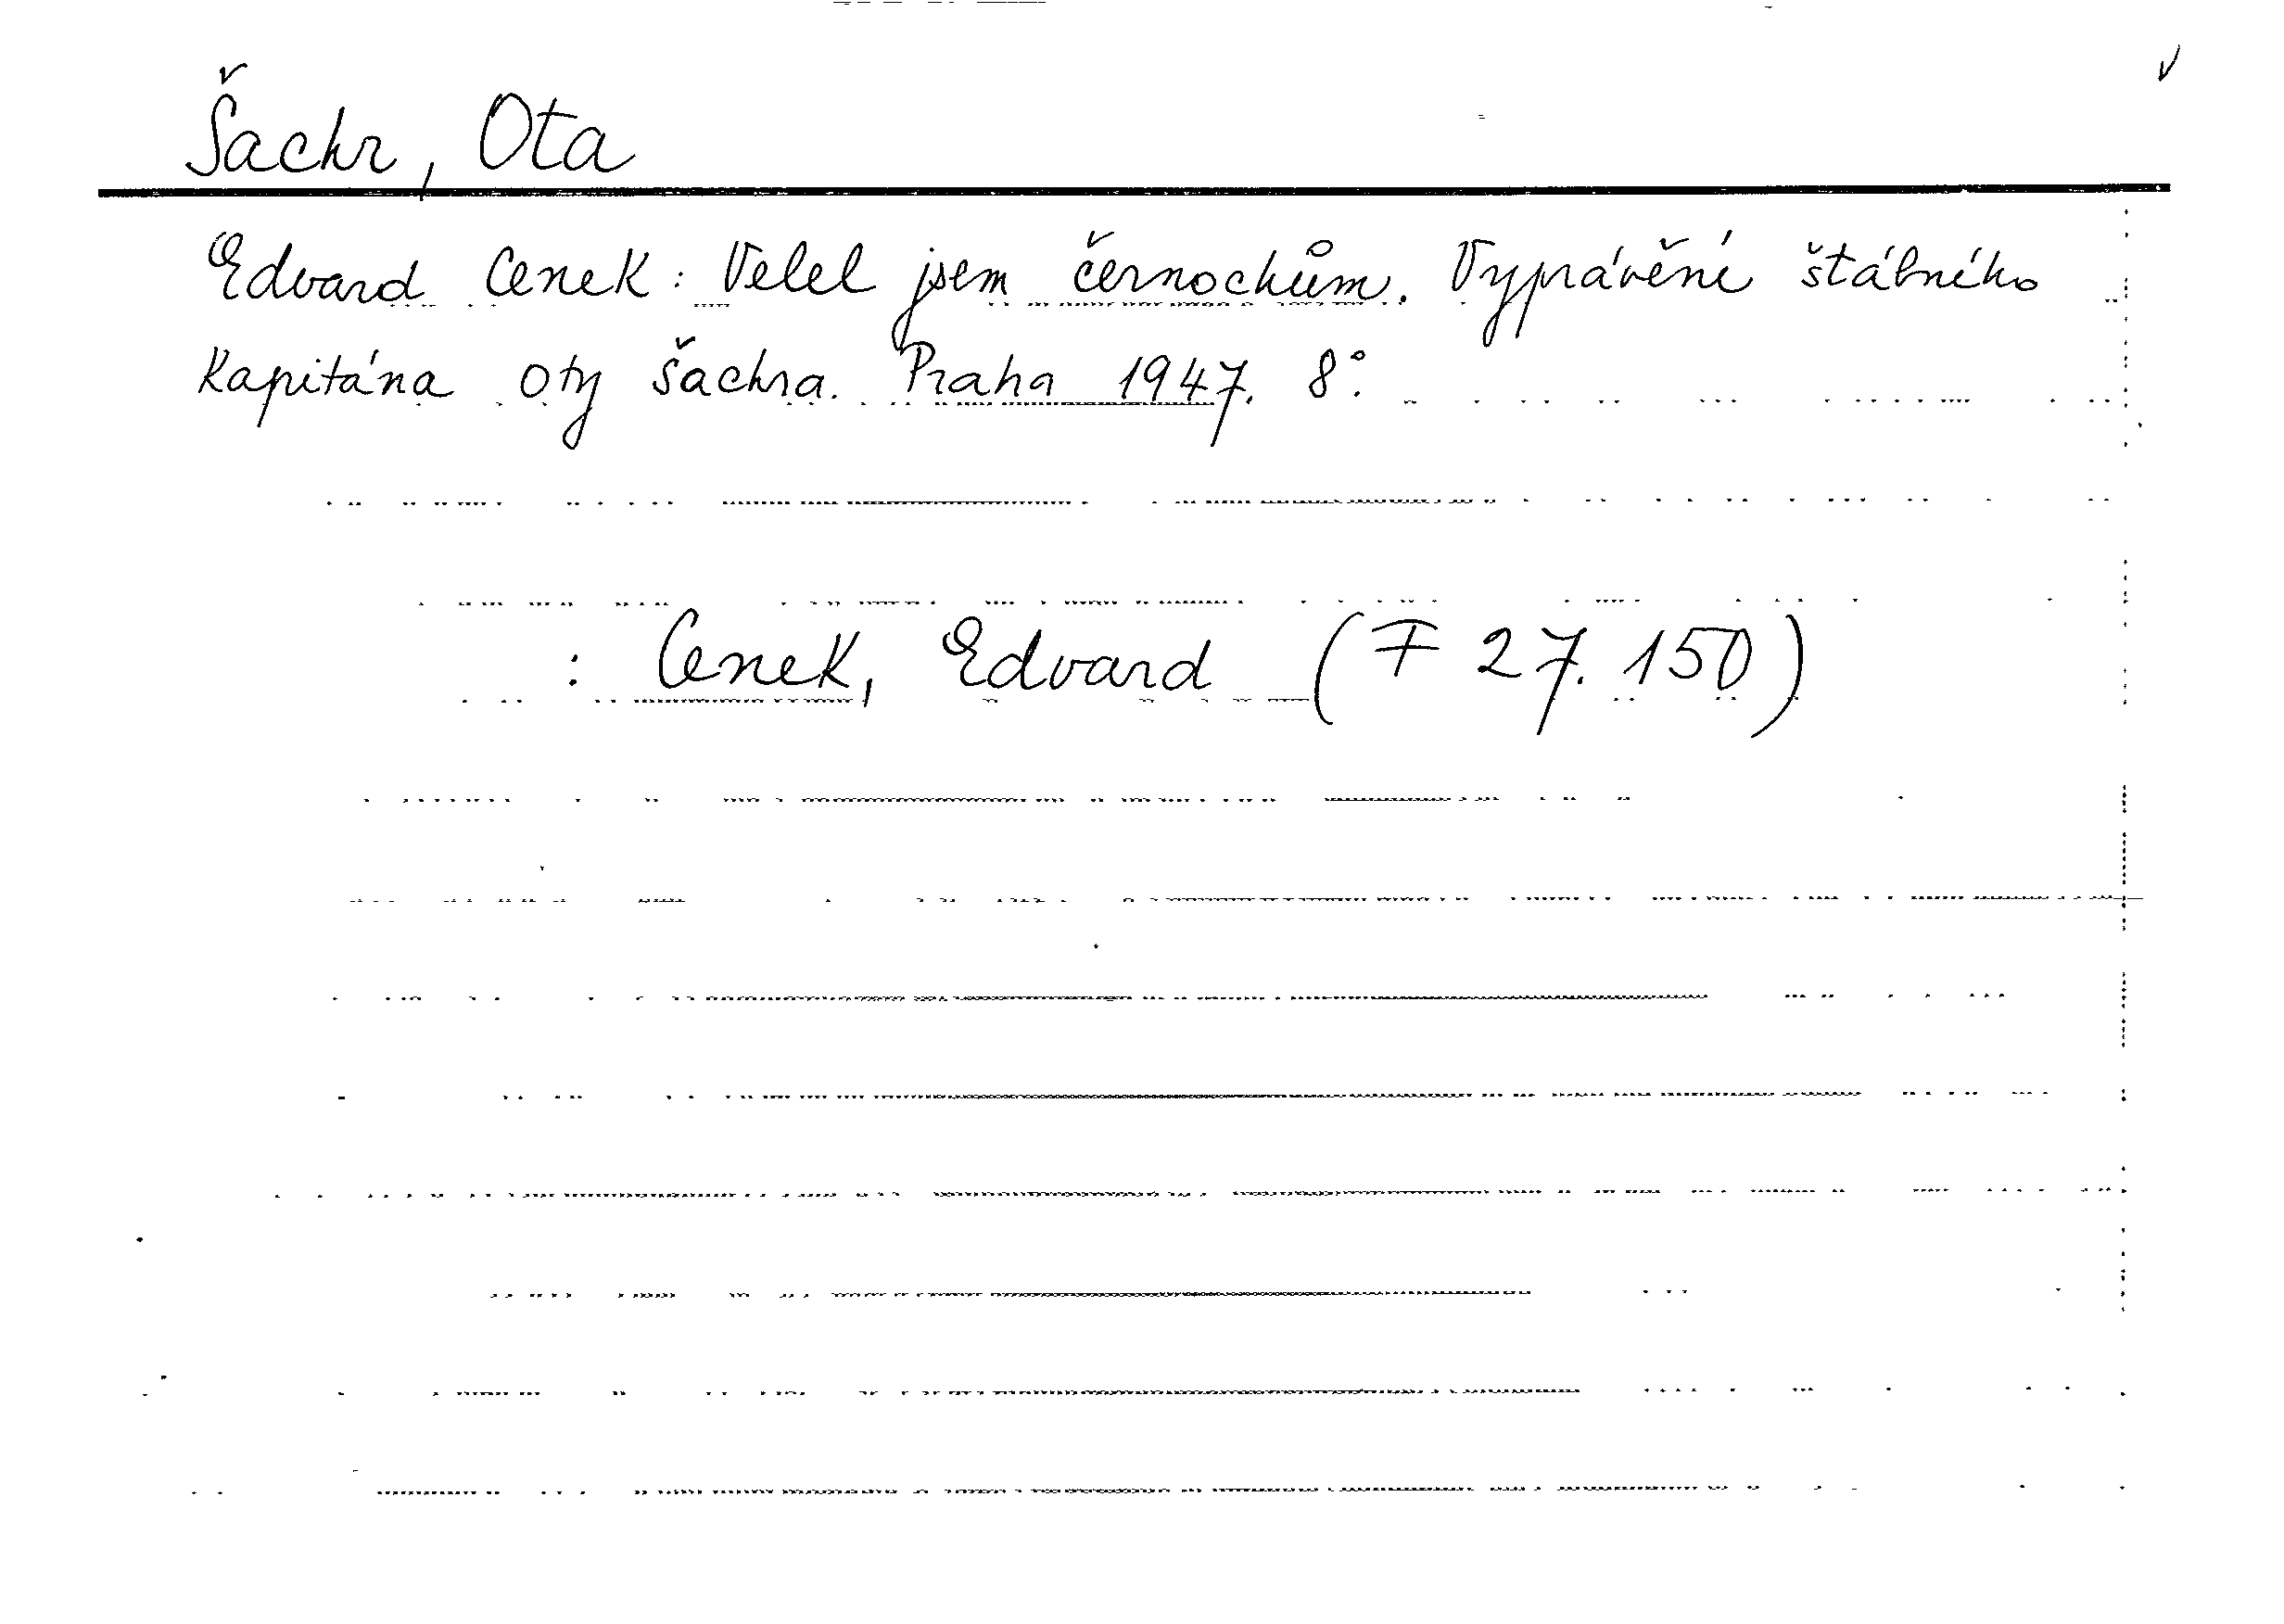 Šachr, Ota
Edvard Cenek: Velel jsem černochům. Vyprávění štábního
kapitána Oty Šachra. Praha 1947. 8°.
: Cenek, Edvard (F 27.150)